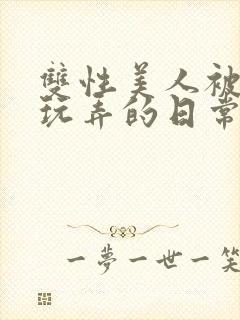 雙性美人被
玩弄的日常
一夢一世一笑